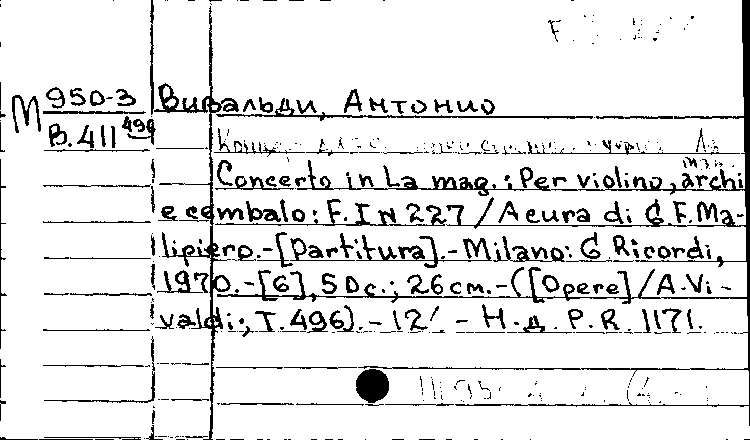 М 950-3 Вивальди, Антонио
В.411 496
Concerto in La mag.: Per violino, archi
e cembalo: F. I N 227 / A cura di G. F. Ma-
lipiero. - [Partitura]. - Milano: G Ricordi,
1970. - [6], 50 c.; 26 cm. - ([Opere] / A. Vi-
valdi; T. 496). - 12'. - Н. д. P. R. 1171.